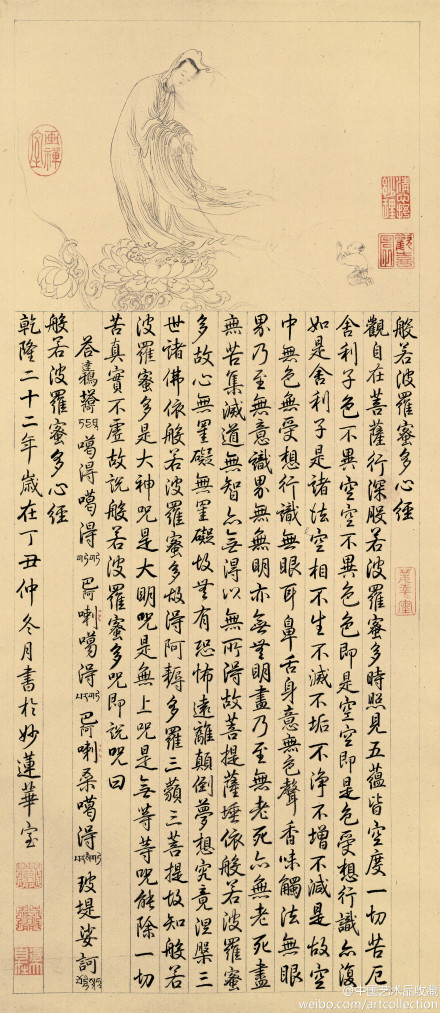 般若波羅蜜多心經
觀自在菩薩行深般若波羅蜜多時照見五蘊皆空度一切苦厄
舍利子色不異空空不異色色即是空空即是色受想行識亦復
如是舍利子是諸法空相不生不滅不垢不淨不增不減是故空
中無色無受想行識無眼耳鼻舌身意無色聲香味觸法無眼
界乃至無意識界無無明亦無無明盡乃至無老死亦無老死盡
無苦集滅道無智亦無得以無所得故菩提薩埵依般若波羅蜜
多故心無罣礙無罣礙故無有恐怖遠離顛倒夢想究竟涅槃三
世諸佛依般若波羅蜜多故得阿耨多羅三藐三菩提故知般若
波羅蜜多是大神呪是大明呪是無上呪是無等等呪能除一切
苦真實不虛故說般若波羅蜜多呪即說呪曰
噶得噶得 巴阿喇噶得 巴阿喇桑噶得 玻堤娑訶
般若波羅蜜多心經
乾隆二十二年歲在丁丑仲冬月書於妙蓮華室
畫禪室
@中国艺术品收藏
weibo.com/artcollection